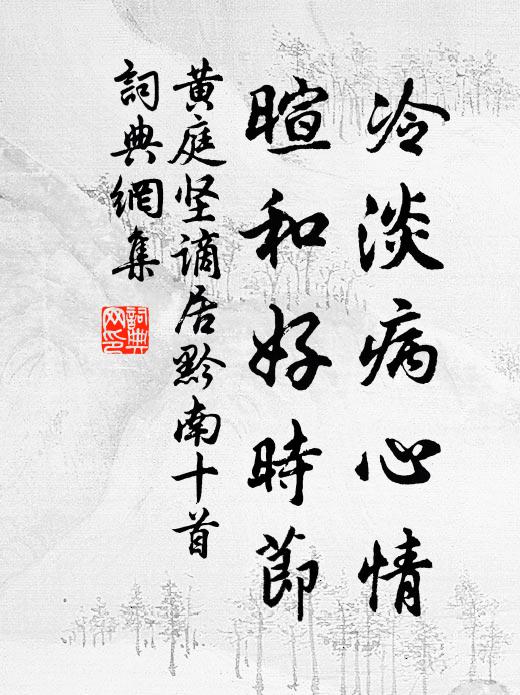 冷淡病心情
暄和好時節
黄庭坚謫居黔南十首
詞典網集
詞典網印